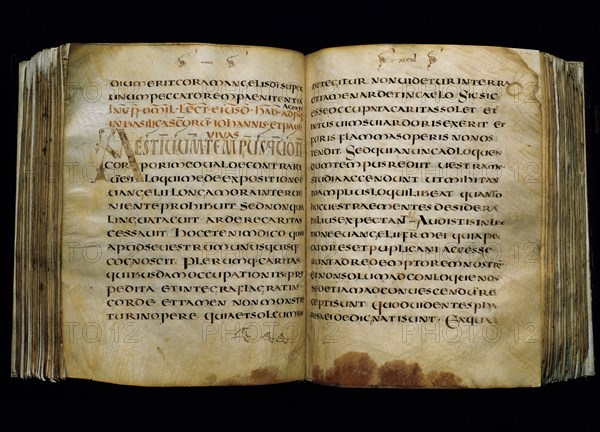 DIUMERITCORAMANGELISDĪSUPER
UNUMPECCATOREMPAENITENTIA
AGENTE
INBASILICASCŌRUMIOHANNISETPAULI
VIVAS
AESTIUUMTEMPUSQUOD
CORPORIMEOUALDECONTRARI
UMEST LOQUIMEDEEXPOSITIONEE
UANGELII LONGAMORAINTERUE
NIENTEPROHIBUIT SEDNONQUIA
LINGUATACUIT ARDERECARITAS
CESSAUIT HOCETENIMDICOQUOD
APUDSEUESTRUMUNUSQUISQ
COGNOSCIT PLERUMQCARITAS
QUIBUSDAMOCCUPATIONIBUSPRE
PEDITA ETINTEGRAFLAGRATIN
CORDE ETTAMEN NONMONSTRA
TURINOPERE QUIAETSOLCUMNU
XXXIII
BETEGITUR NONUIDETURINTERRA
ETTAMENARDETINCAELO SICSIC
ESSEOCCUPATACARITASSOLET ET
INTUSUIMSUIARDORISEXERIT ET
FORISFLAMMASOPERISNONOS
TENDIT SEDQUIANUNCADLOQUEN
DUMTEMPUSREDIIT UESTRAME
STUDIAACCENDUNT UTMIHITAN
TOAMPLIUSLOQUILIBEAT QUANTO
HOCUESTRAEMENTESDESIDERA
BILIUSEXPECTANT AUDISTISINLEC
TIONEEUANGELII FRMEI QUIAPEC
CATORESETPUBLICANI ACCESSE
RUNTADREDEMPTOREMNOSTRUM
ETNONSOLUMADCONLOQUENDUM
SEDETIAMADCONUESCENDUMRE
CEPTISUNT QUODUIDENTESPHA
RISAEIDEDIGNATISUNT EXQUA
PHOTO 12